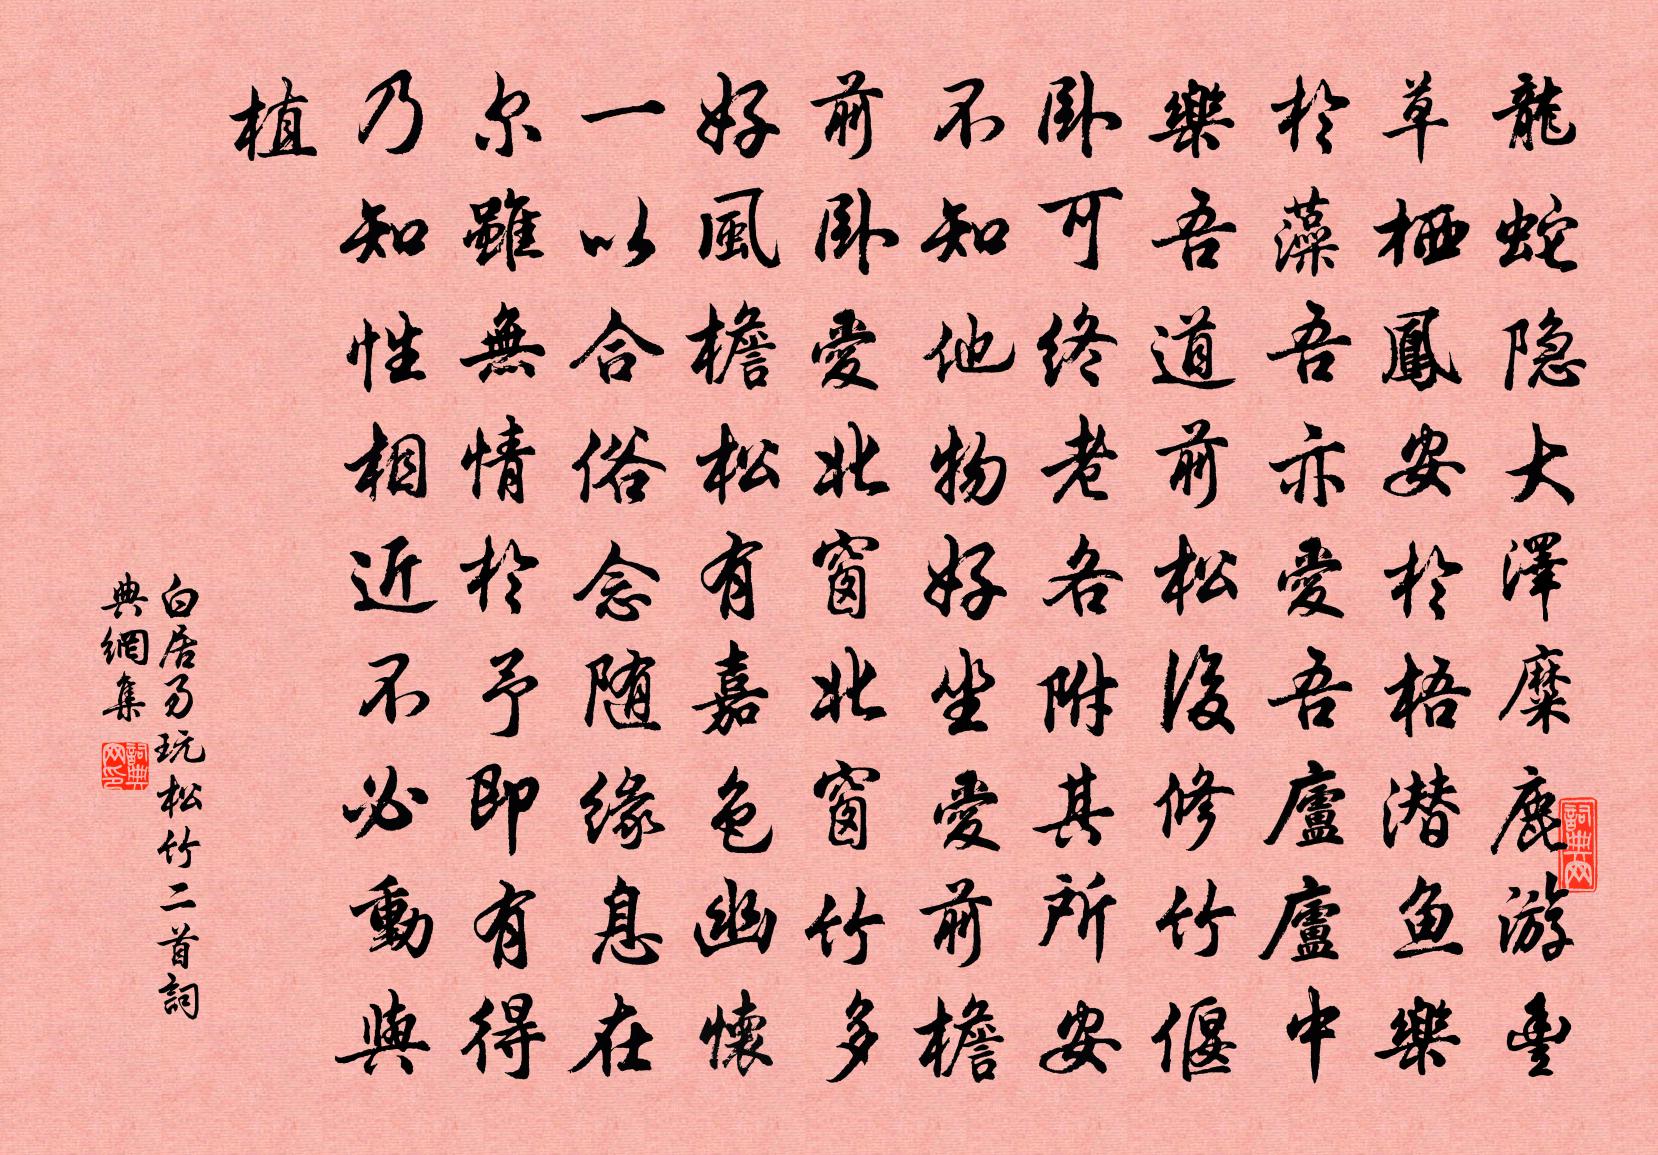 龍蛇隐大澤麋鹿游豊
草栖鳳安於梧潜魚樂
於藻吾亦愛吾廬廬中
樂吾道前松後修竹偃
臥可终老各附其所安
不知他物好坐愛前檐
前臥愛北窗北窗竹多
好風檐松有嘉色幽懷
一以合俗念随缘息在
尔雖無情於予即有得
乃知性相近不必動與
植
白居易玩松竹二首詞
典網集
詞典网印
詞典网